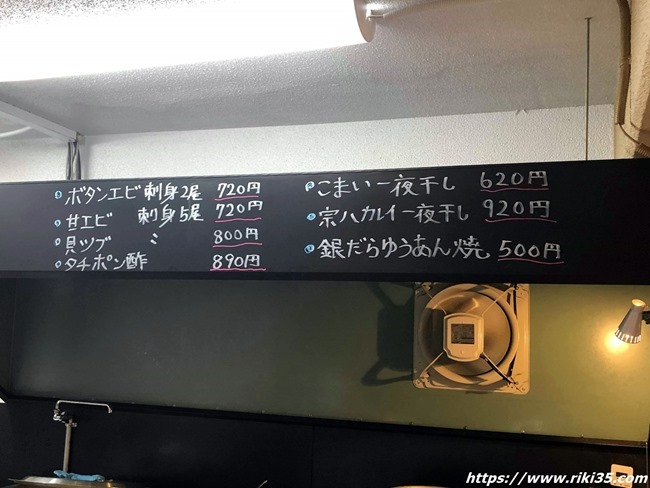 ボタンエビ 刺身2尾 720円
甘エビ 刺身5尾 720円
真ツブ 〃 800円
タチポン酢 890円
こまい一夜干し 620円
宗八カレイ一夜干し 920円
銀だらゆうあん焼 500円
https://www.riki35.com